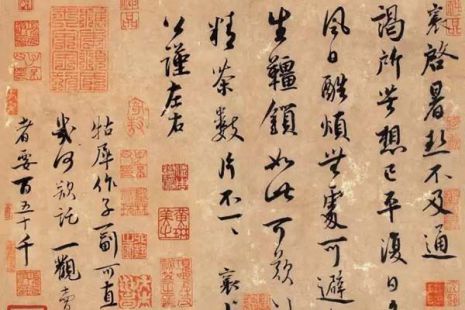 襄啓暑熱不及通
謁所苦想已平復日
風日酷煩無處可避
生韁鎖如此可歎
精茶數片不一一 襄上
公謹左右
牯犀作子一副可直
幾何欲託一觀賣
者要百五十千